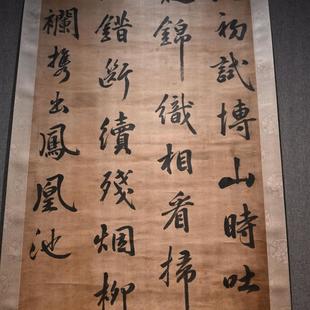 初試博山時吐
錦織相看掃
錯斷續殘烟柳
襴携出鳳凰池